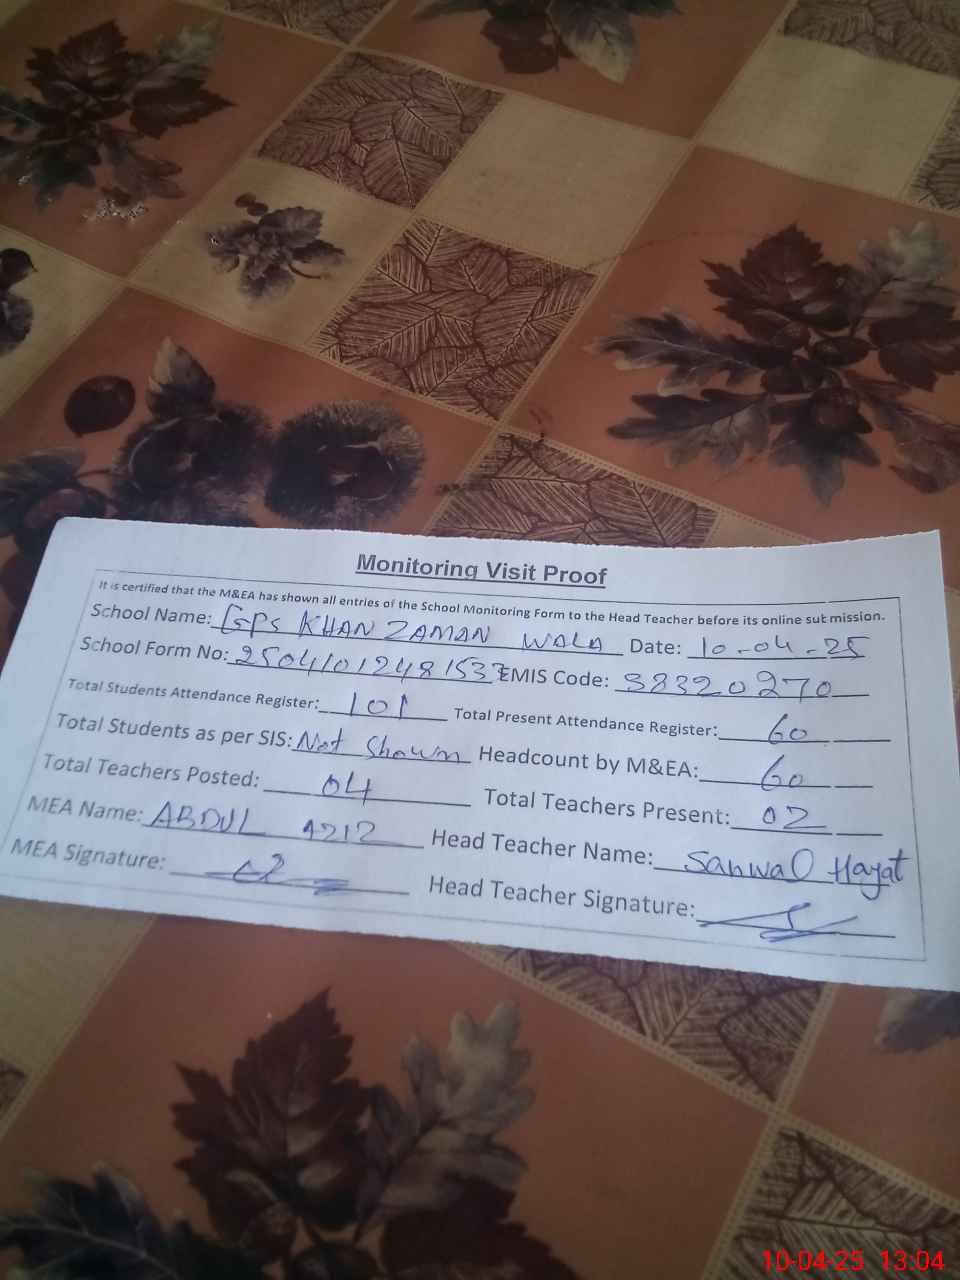 Monitoring Visit Proof
It is certified that the M&EA has shown all entries of the School Monitoring Form to the Head Teacher before its online submission.
School Name: GPS KHAN ZAMAN WALA Date: 10-04-25
School Form No: EMIS Code: 38320270
Total Students Attendance Register: 101 Total Present Attendance Register: 60
Total Students as per SIS: Not Shown Headcount by M&EA: 60
Total Teachers Posted: 04 Total Teachers Present: 02
MEA Name: ABDUL AZIZ Head Teacher Name: Sanwal Hayat
MEA Signature: Head Teacher Signature:
10-04-25 13:04